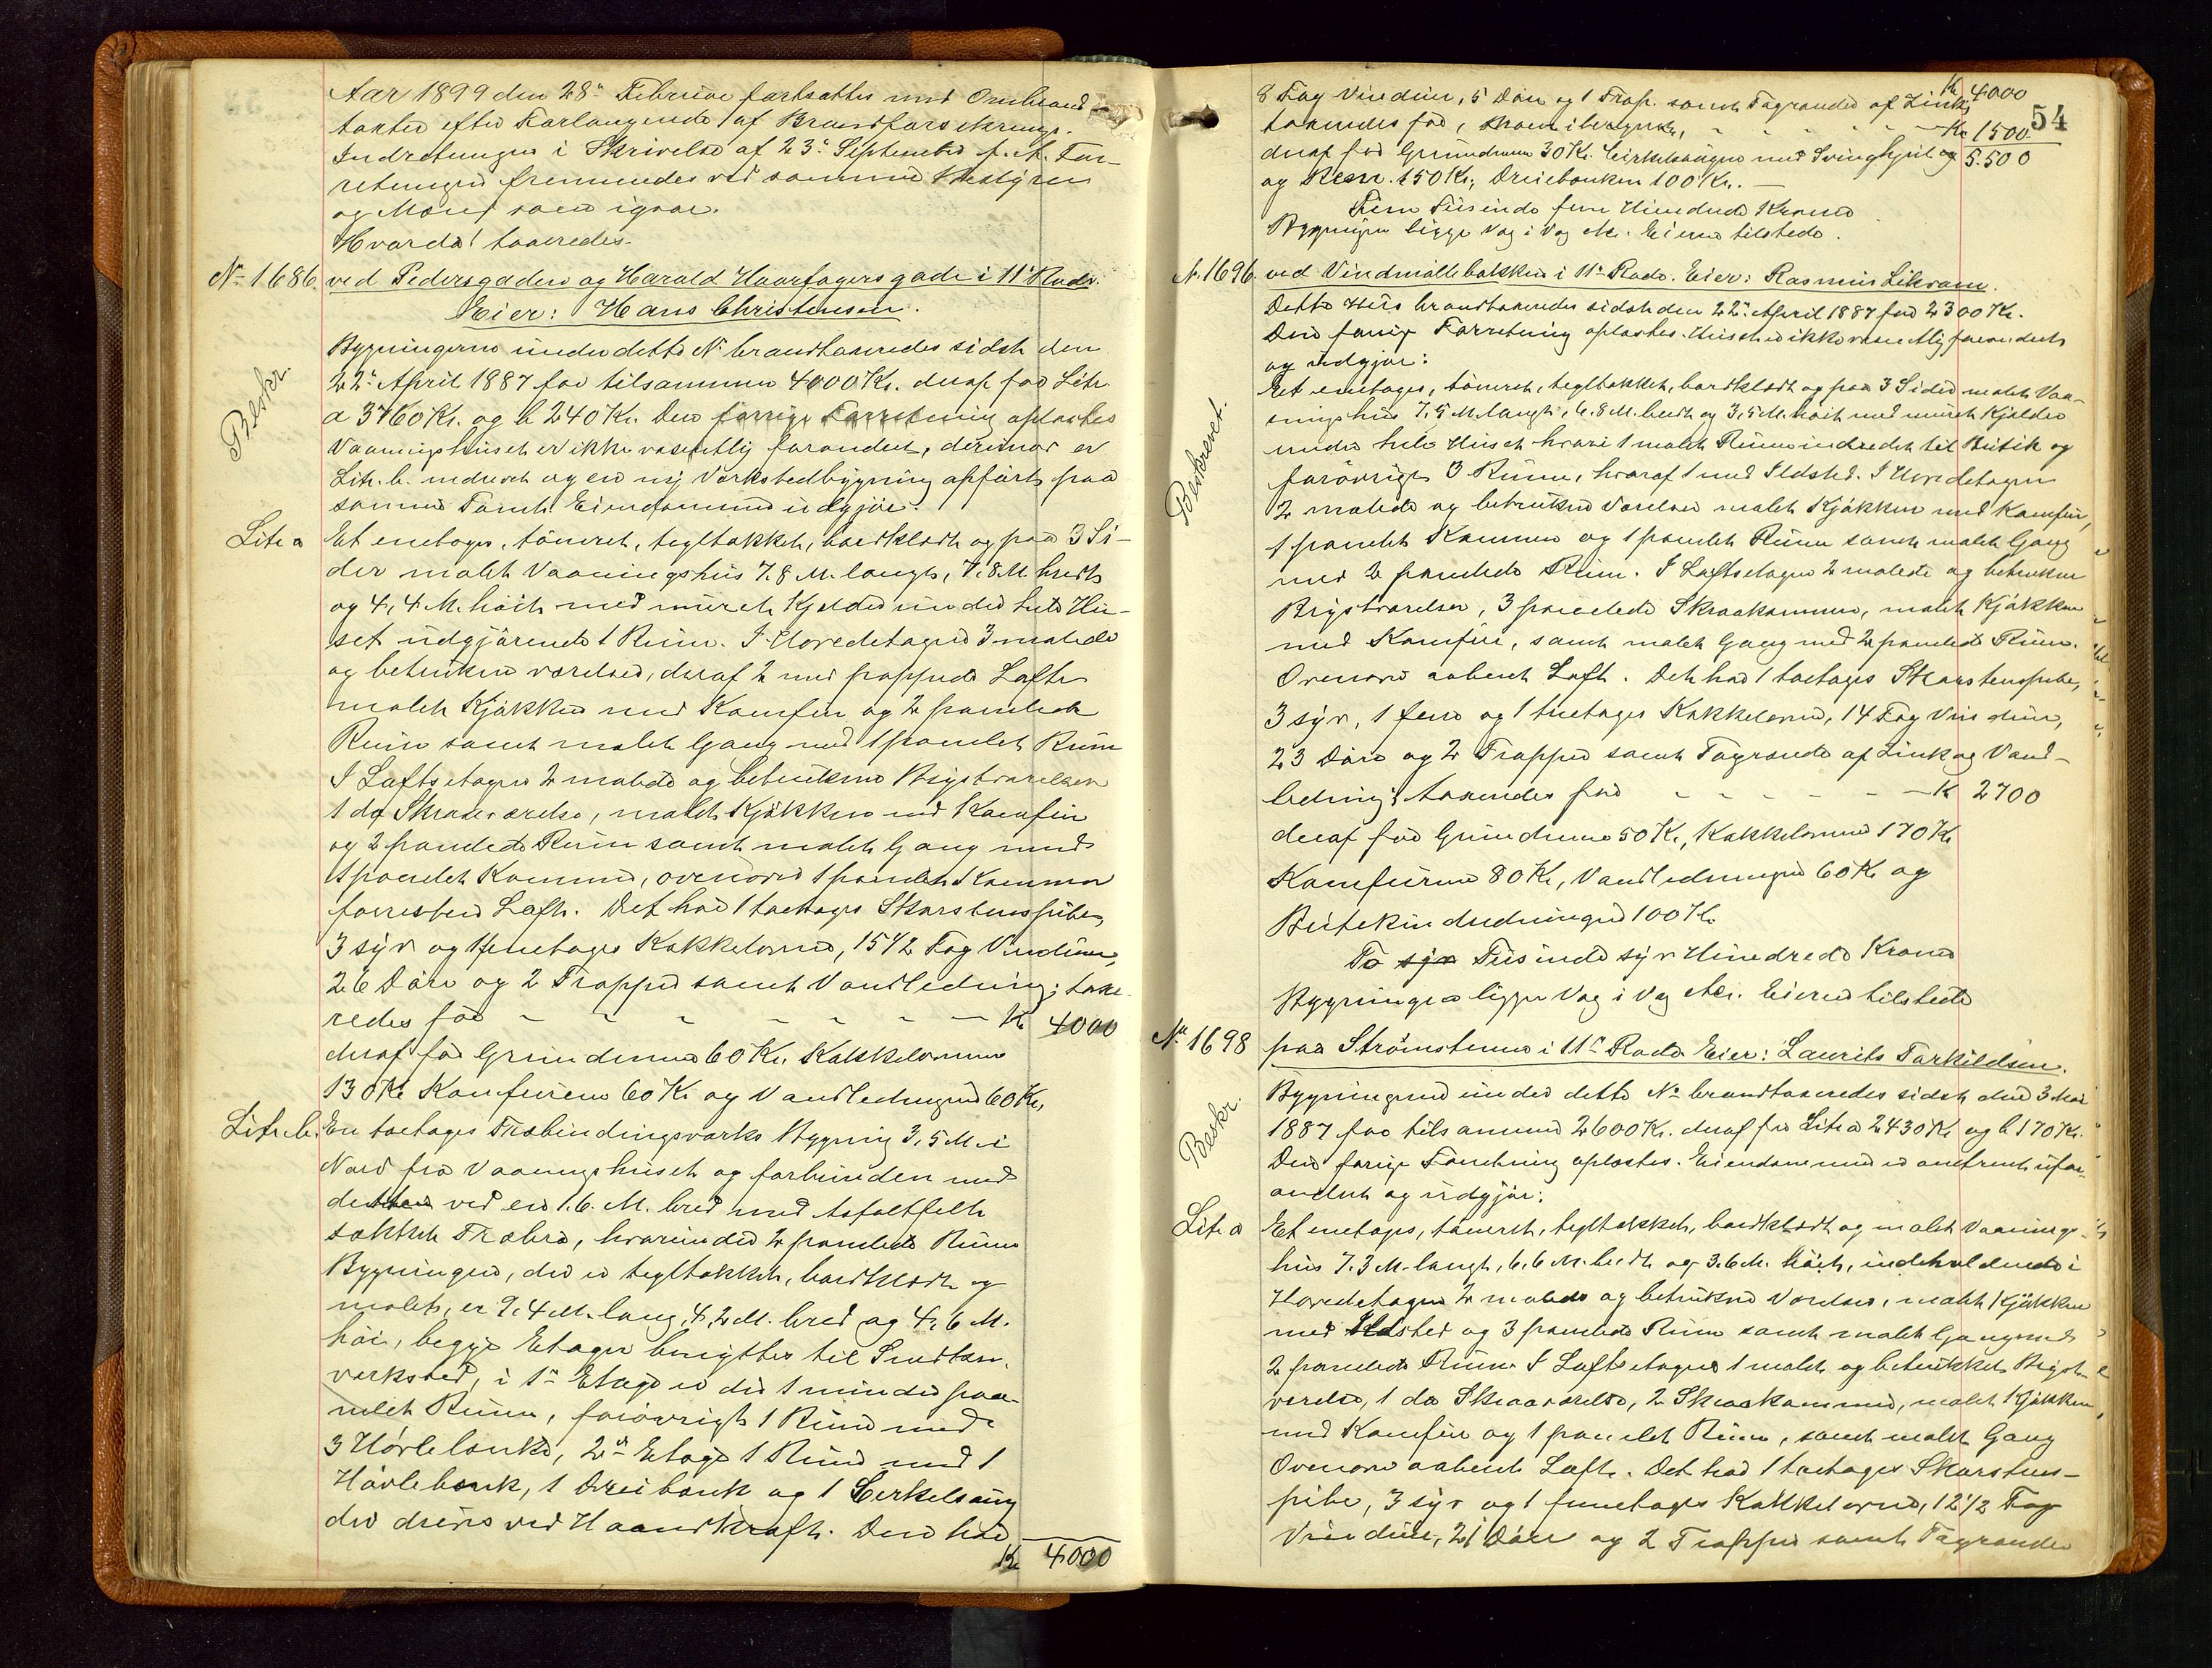 Aar 1899 den 28de Februar fortsattes med Ombrand-
taxter efter Forlangende af Brandforsikrings-
Indretningen i Skrivelse af 23de September f. A. For-
retningen fremmedes ved samme Bestyrer
og Mænd som igaar.
Hvorda taxeredes.
No 1686. ved Pedersgaden og Harald Haarfagersgade i 11te Rode.
Eier: Hans Christensen.
Beskr.
Bygningerne under dette No brandtaxeredes sidst den
22de April 1887 for tilsammen 4000 Kr. deraf for Litr.
a 3760 Kr. og b 240 Kr. Den forrige Forretning oplæstes
Vaaningshuset er ikke væsentlig forandret, derimod er
Litr. b. nedrevet og en ny Værkstedbygning opført paa
samme Tomt. Eiendommen udgjør:
Litr a Et enetages, tømret, tegltækket, bordklædt og paa 3 Si-
der malet Vaaningshus 7.8 M. langt, 7.8 M. bredt
og 4,4 M. høit med muret Kjelder under hele Hu-
set udgjørende 1 Rum. I Hovedetagen 3 malede
og betrukne værelser, deraf 2 med pappede Lofte
malet Kjøkken med Komfur og 2 panelede
Rum samt malet Gang med 1 panelet Rum
I Loftsetagen 2 malede og betrukne Kvistværelser
1 do Skraaværelse, malet Kjøkken med Komfur
og 2 panelede Rum samt malet Gang med
1 panelet Kammer, ovenover 1 panelet Kammer
forresten Loft. Det har 1 toetages Skorstenspibe,
3 syv og 1 femetages Kakkelovne, 15 1/2 Fag Vinduer,
26 Døre og 2 Trapper samt Vandledning; taxe-
redes for - - - - - - - Kr 4000
deraf for Grundmur 60 Kr. Kakkelovnene
130 Kr Komfurene 60 Kr og Vandledningen 60 Kr.
Litr. b. En toetages Træbindingsværks Bygning 3,5 M. i
Nord fra Vaaningshuset og forbunden med
dette ved en 1.6. M. bred med Asfaltfelt
tækket Træbro, hvorunder 2 panelede Rum
Bygningen, der er tegltækket, bordklædt og
malet, er 9,4 M. lang, 4,2 M. bred og 4,6 M.
høi, begge Etager benyttes til Snedker-
værksted, i 1ste Etage er der 1 mindre pa-
nelet Rum, forøvrigt 1 Rum med
3 Høvlebænke, 2den Etage 1 Rum med 1
Høvlebænk, 1 Dreibænk og 1 Cirkelsaug
der drives ved Haandkraft. Den har
Kr 4000
54
Kr 4000
8 Fag Vinduer, 5 Døre og 1 Trap. samt Tagrender af Zink,
taxeredes for, Træ iberegnet, - - - - - Kr 1500
deraf for Grundmuren 30 Kr. Cirkelsaugen med Svinghjul og 5.500
og Rem. 150 Kr., Dreiebænken 100 Kr. -
Fem Tusinde fem Hundrede Kroner
Bygningen ligger Væg i Væg etc. Eieren tilstede.
N. 1696 ved Vindmøllebakken i 11te Rode. Eier: Rasmus Likvam.
Beskrevet.
Dette Hus brandtaxeredes sidst den 22de April 1887 for 2300 Kr.
Den forrige Forretning oplæstes. Huset er ikke væsentlig forandret
og udgjør:
Et enetages, tømret, tegltækket, bordklædt og paa 3 Sider malet Vaa-
ningshus 7,5 M. langt, 6.8 M. bredt og 3,5 M. høit med muret Kjelder
under hele Huset hvori 1 malet Rum indredet til Butik og
forøvrigt 3 Rum, hvoraf 1 med Ildsted. I Hovedetagen
2 malede og betrukne Værelser malet Kjøkken med Komfur,
1 panelet Kammer og 1 panelet Rum samt malet Gang
med 2 panelede Rum. I Loftsetagen 2 malede og betrukne
Kvistværelser, 3 panelede Skraakammer, malet Kjøkken
med Komfur, samt malet Gang med 2 panelede Rum.
Ovenover aabent Loft. Det har 1 toetages Skorstenspibe,
3 syv, 1 fem og 1 treetages Kakkelovne, 14 Fag Vinduer,
23 Døre og 2 Trapper samt Tagrender af Zink og Vand-
ledning taxeredes for - - - - - - Kr 2700
deraf for Grundmuren 50 Kr, Kakkelovnene 170 Kr
Komfurene 80 Kr, Vandledningen 60 Kr og
Butikindredningen 100 Kr.
To syv Tusinde syv Hundrede Kroner
Bygningen ligger Væg i Væg etc. Eieren tilstede
No 1698 paa Strømstenen i 11te Rode Eier: Laurits Torkildsen.
Beskr.
Bygningerne under dette No brandtaxeredes sidst den 3 Mai
1887 for tilsammen 2600 Kr. deraf for Litr a 2430 Kr og b 170 Kr.
Den forrige Forretning oplæstes. Eiendommen er omtrent ufor-
andret og udgjør:
Litr a Et enetages, tømret, tegltækket, bordklædt og malet Vaanings-
hus 7.3 M. langt, 6,6 M. bredt og 3.6 M. høit, indeholdende i
Hovedetagen 2 malede og betrukne Værelser, malet Kjøkken
med Ildsted og 3 panelede Rum samt malet Gang med
2 panelede Rum. I Loftsetagen 1 malet og betrukket Kvist-
værelse, 1 do Skraaværelse, 2 Skraakammer, malet Kjøkken,
med Komfur og 1 panelet Rum, samt malet Gang
Ovenover aabent Loft. Det har 1 toetages Skorstens-
pibe, 3 syv og 1 femetages Kakkelovne, 12 1/2 Fag
Vinduer, 21 Døre og 2 Trapper samt Tagrender